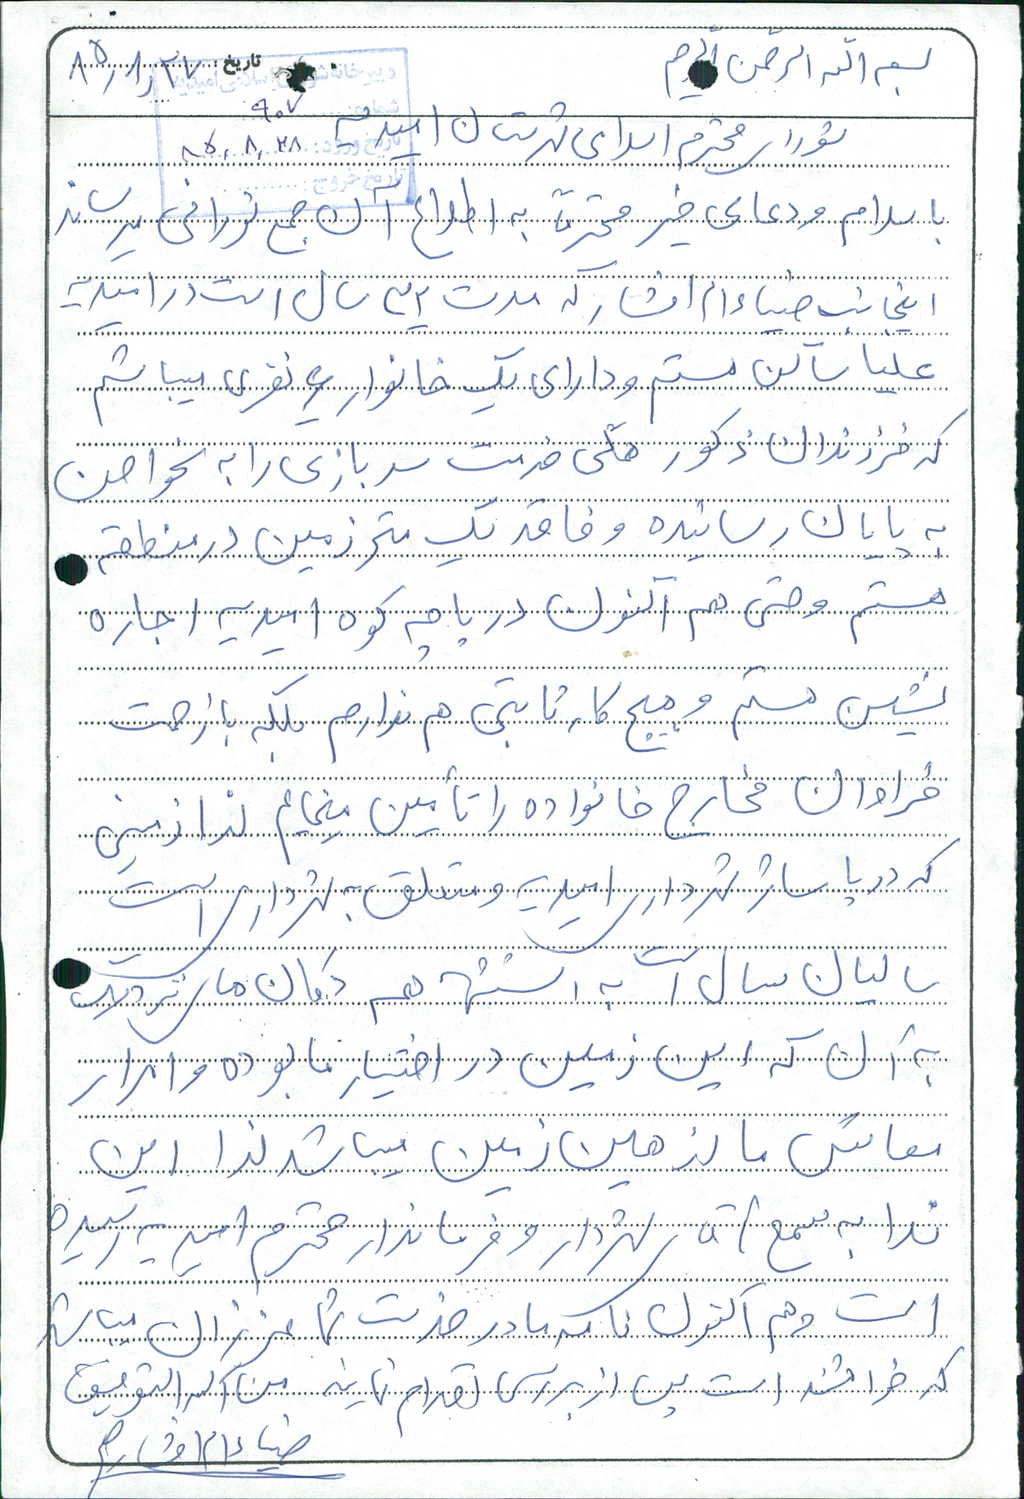 بسم الله الرحمن الرحیم
تاریخ: ۸۵/۸/۲۷
۹۰۷
۸۵/۸/۲۸
شورای محترم اسلامی شهرستان امیدیه
با سلام و دعای خیر محترماً به اطلاع آن جمع نورانی میرساند
اینجانب ضیاء افشار که مدت ۳۲ سال است در امیدیه
علیا ساکن هستم و دارای یک خانوار نفری میباشم
که فرزندان ذکور همگی خدمت سربازی را به نحو احسن
به پایان رسانیده و فاقد یک متر زمین در منطقه
هستم و حتی هم اکنون در پاچه کوه امیدیه اجاره
نشین هستم و هیچ کار ثابتی هم ندارم بلکه با زحمت
فراوان مخارج خانواده را تأمین مینمایم لذا زمینی
که در پاساژ شهرداری امیدیه و متعلق به شهرداری است
سالیان سال است به هم دکان های نزدیک
به آن که این زمین در اختیار ما بوده و امرار
معاش ما از همین زمین میباشد لذا این
ندا به سمع آقای شهردار و فرماندار محترم امیدیه رسیده
است و هم اکنون نامه ما در خدمت شما عزیزان میباشد
که خواهشمند است پس از بررسی اقدام نمایید من الله التوفیق
ضیاء افشار